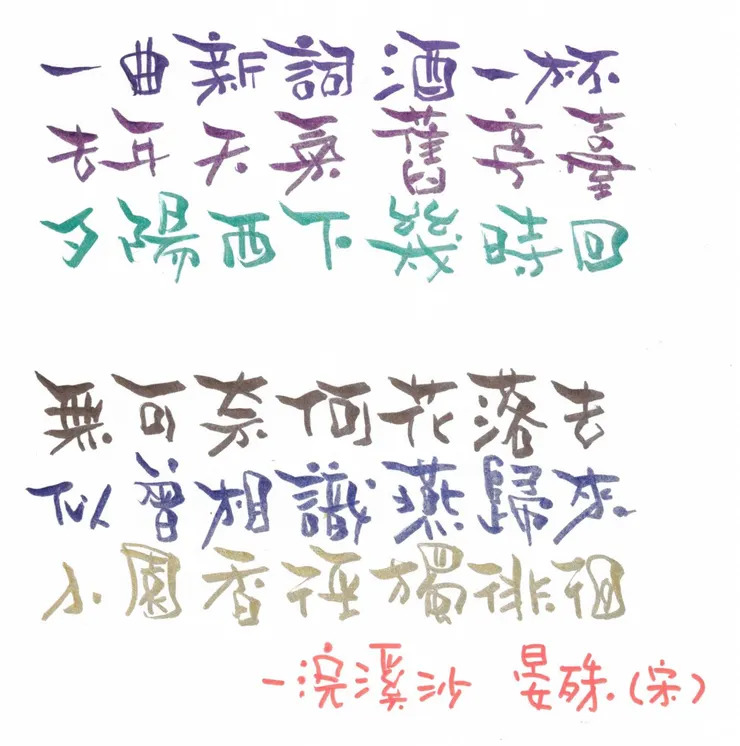 一曲新詞酒一杯
去年天氣舊亭臺
夕陽西下幾時回
無可奈何花落去
似曾相識燕歸來
小園香徑獨徘徊
-浣溪沙 晏殊.(宋)